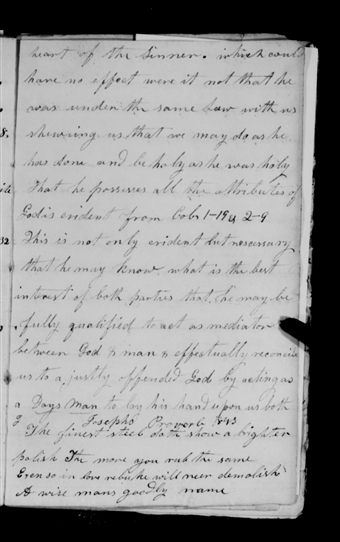 heart of the sinner. which could
have no effect were it not that he
was under the same Law with us
shewing us that we may do as he
has done and be holy as he was holy
That he possesses all the attributes of
God is evident from Cols 1-19 & 2-9
This is not only evident but necessary
that he may know what is the best
interest of both parties that he may be
fully qualified to act as mediator
between God & man & effectually reconcile
us to a justly offended God by acting as
a Days Man to lay his hand upon us both
Joseph's Proverb 1843
The finest steel doth show a brighter
polish The more you rub the same
Even so in love rebuke will neer demolish
A wise mans goodly name